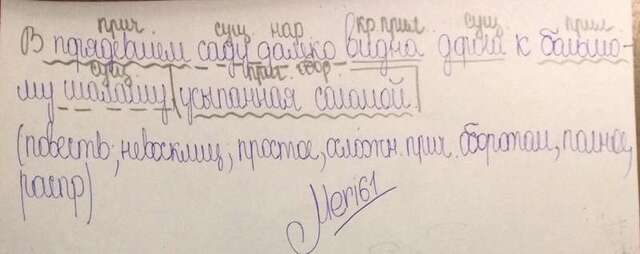 прич. сущ нар кр.прил сущ прил.
В поредевшем саду далеко видна дорога к большо-
сущ прич. обор.
му шалашу, усыпанная соломой.
(повеств, невосклиц, простое, осложн. прич. оборотом, полное,
распр)
Meri61